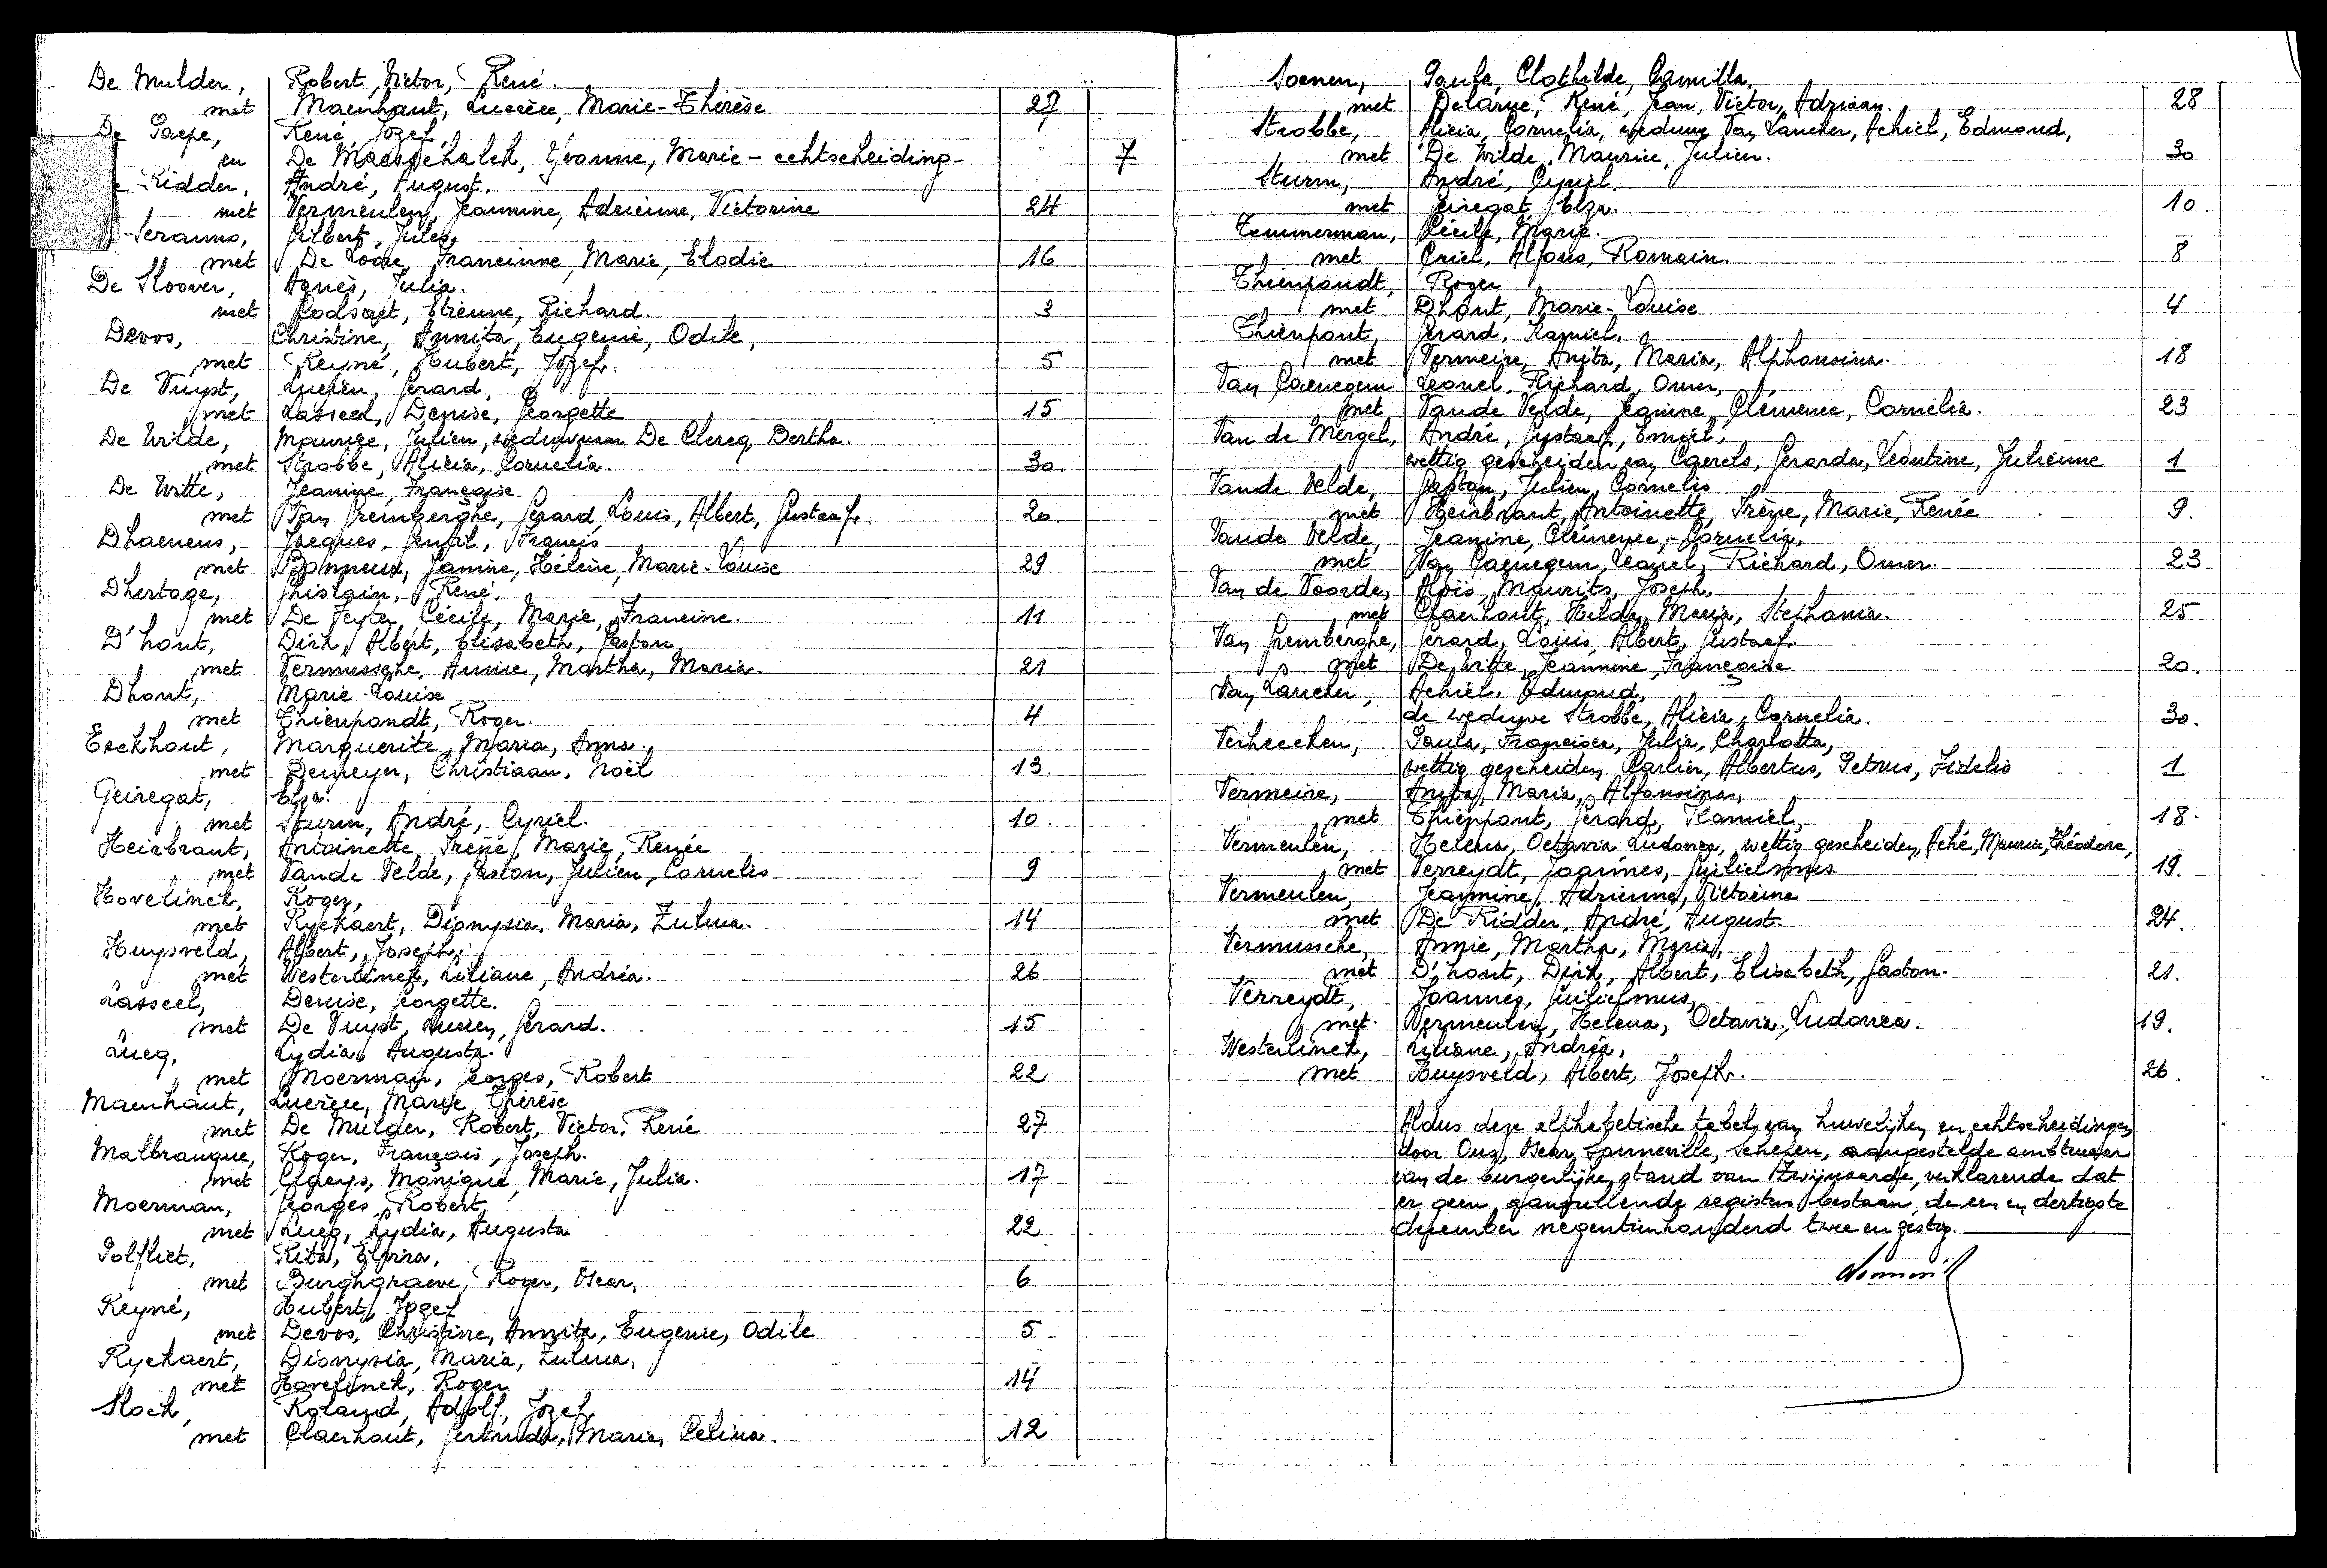 De Mulder, Robert, Victor, René.
met Maenhaut, Lucrèce, Marie-Thérèse 27
De Paepe, René, Jozef
en De Maesschalck, Yvonne, Marie - echtscheiding - 7
Ridder, André, August.
met Vermeulen, Jeannine, Adrienne, Victorine 24
Seranno, Gilbert, Jules,
met De Loore, Francinne, Marie, Elodie 16
De Sloover, Agnès, Julia.
met Etienne, Richard. 3
Devos, Christine, Annita, Eugenie, Odile,
met Reyné, Hubert, Jozef. 5
De Vuyst, Lucien, Gerard,
met Lasseel, Denise, Georgette 15
De Wilde, Maurice, Julien, weduwnaar De Clercq, Bertha.
met Strobbe, Alicia, Cornelia. 30.
De Witte, Jeanine, Françoise
met Van Gremberghe, Gerard, Louis, Albert, Gustaaf. 20.
Dhaenens, Jacques, Gentil, Francis
met Janine, Hélène, Marie-Louise 29
Dhertoge, Ghislain, René.
met De Feyter, Cécile, Marie, Francine. 11
D'hont, Dirk, Albert, Elisabeth, Gaston
met Vermussche, Annie, Martha, Maria. 21
Dhont, Marie-Louise
met Thienpondt, Roger. 4
Eeckhout, Marguerite, Maria, Anna.
met Demeyer, Christiaan, Noël 13
Geiregat, Elza.
met Sturm, André, Cyriel. 10.
Heirbraut, Antoinette, Irène, Marie, Renée
met Vande Velde, Gaston, Julien, Cornelis 9
Hovelinck, Roger,
met Ryckaert, Dionysia, Maria, Zulma. 14
Huysveld, Albert, Joseph,
met Westerlinck, Liliane, Andréa. 26
Lasseel, Denise, Georgette.
met De Vuyst, Lucien, Gerard. 15
Lucq, Lydia, Augusta.
met Moerman, Georges, Robert 22
Maenhaut, Lucrèce, Marie, Thérèse
met De Mulder, Robert, Victor, René 27
Malbranque, Roger, François, Joseph.
met Claeys, Monique, Marie, Julia. 17
Moerman, Georges, Robert,
met Lucq, Lydia, Augusta 22
Polfliet, Rita, Elvira,
met Burghgraeve, Roger, Oscar, 6
Reyné, Hubert, Jozef
met Devos, Christine, Annita, Eugenie, Odile 5
Ryckaert, Dionysia, Maria, Zulma,
met Hovelinck, Roger 14
Slock, Roland, Adolf, Jozef
met Claerhout, Gertruda, Maria, Celina. 12
Soenen, Paula, Clothilde, Camilla.
met Delarue, René, Jean, Victor, Adriaan. 28
Strobbe, Alicia, Cornelia, weduwe Van Lancker, Achiel, Edmond,
met De Wilde, Maurice, Julien. 30
Sturm, André, Cyriel.
met Geiregat, Elza. 10.
Temmerman, Cécile, Marie.
met Criel, Alfons, Romain. 8
Thienpondt, Roger
met Dhont, Marie-Louise 4
Thienpont, Gerard, Kamiel.
met Vermeire, Anita, Maria, Alphonsina. 18
Van Caenegem Leonel, Richard, Omer,
met Vande Velde, Jeanine, Clémence, Cornelia. 23
Van de Mergel, André, Gustaaf, Emiel,
wettig gescheiden van Caerels, Gerarda, Leontine, Julienne 1
Vande Velde, Gaston, Julien, Cornelis
met Heirbraut, Antoinette, Irène, Marie, Renée 9.
Vande Velde, Jeanine, Clémence, Cornelia,
met Van Caenegem, Leonel, Richard, Omer. 23
Van de Voorde, Aloïs, Maurits, Joseph,
met Claerhout, Hilda, Maria, Stephania. 25
Van Gremberghe, Gerard, Louis, Albert, Gustaaf.
met De Witte, Jeannine, Françoise 20.
Van Lancker, Achiel, Edmond,
de weduwe Strobbe, Alicia, Cornelia. 30.
Verheecken, Paula, Francisca, Julia, Charlotta,
wettig gescheiden Carlier, Albertus, Petrus, Fidelis 1
Vermeire, Anita, Maria, Alfonsina,
met Thienpont, Gerard, Kamiel, 18.
Vermeulen, Helena, Octavia Ludovica, wettig gescheiden, Aché, Maurice, Théodore,
met Verreydt, Joannes, Guilielmus. 19.
Vermeulen, Jeannine, Adrienne, Victorine
met De Ridder, André, August. 24.
Vermussche, Annie, Martha, Maria,
met D'hont, Dirk, Albert, Elisabeth, Gaston. 21.
Verreydt, Joannes, Guilielmus,
met Vermeulen, Helena, Octavia, Ludovica. 19.
Westerlinck, Liliane, Andréa,
met Huysveld, Albert, Joseph. 26.
Aldus deze alphabetische tabel van huwelijken en echtscheidingen
door Ons, Oscar Sonneville, schepen, aangestelde ambtenaar
van de burgerlijke stand van Zwijnaarde, verklarende dat
er geen aanvullende registers bestaan, de een en dertigste
december negentienhonderd twee en zestig.